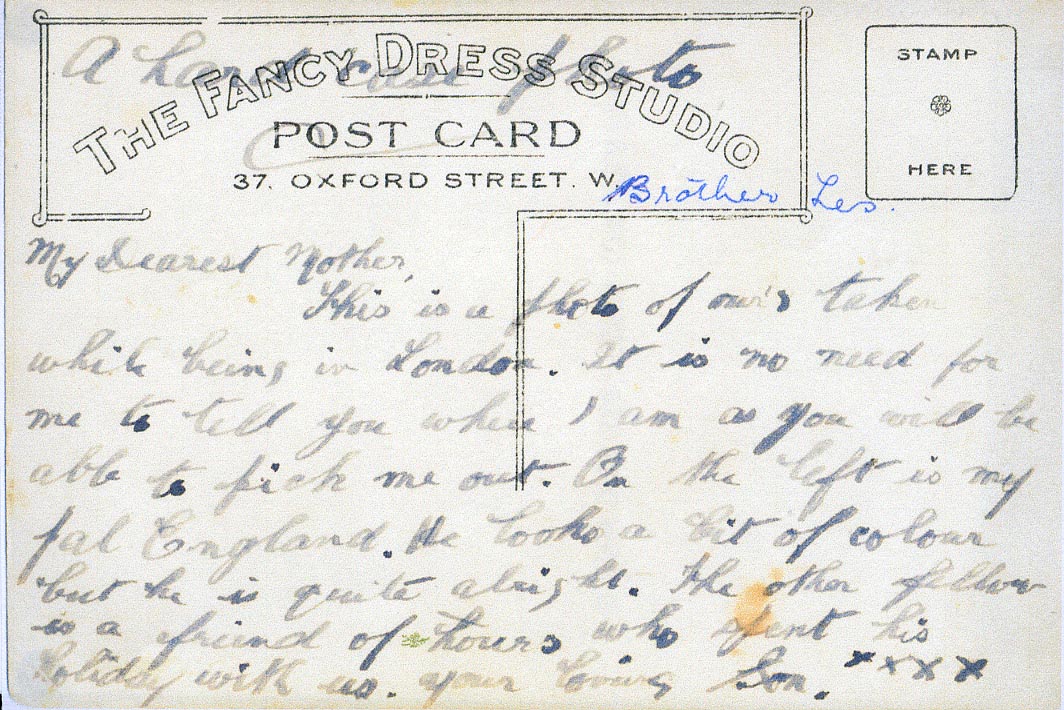 A hard case photo
THE FANCY DRESS STUDIO
POST CARD
37. OXFORD STREET. W.
STAMP
HERE
Brother Les.
My Dearest Mother,
This is a photo of our's taken
while being in London. It is no need for
me to tell you where I am as you will be
able to pick me out. On the left is my
pal England. He looks a bit of colour
but he is quite alright. The other fellow
is a friend of hours who spent his
holiday with us. your loving Son. xxxx